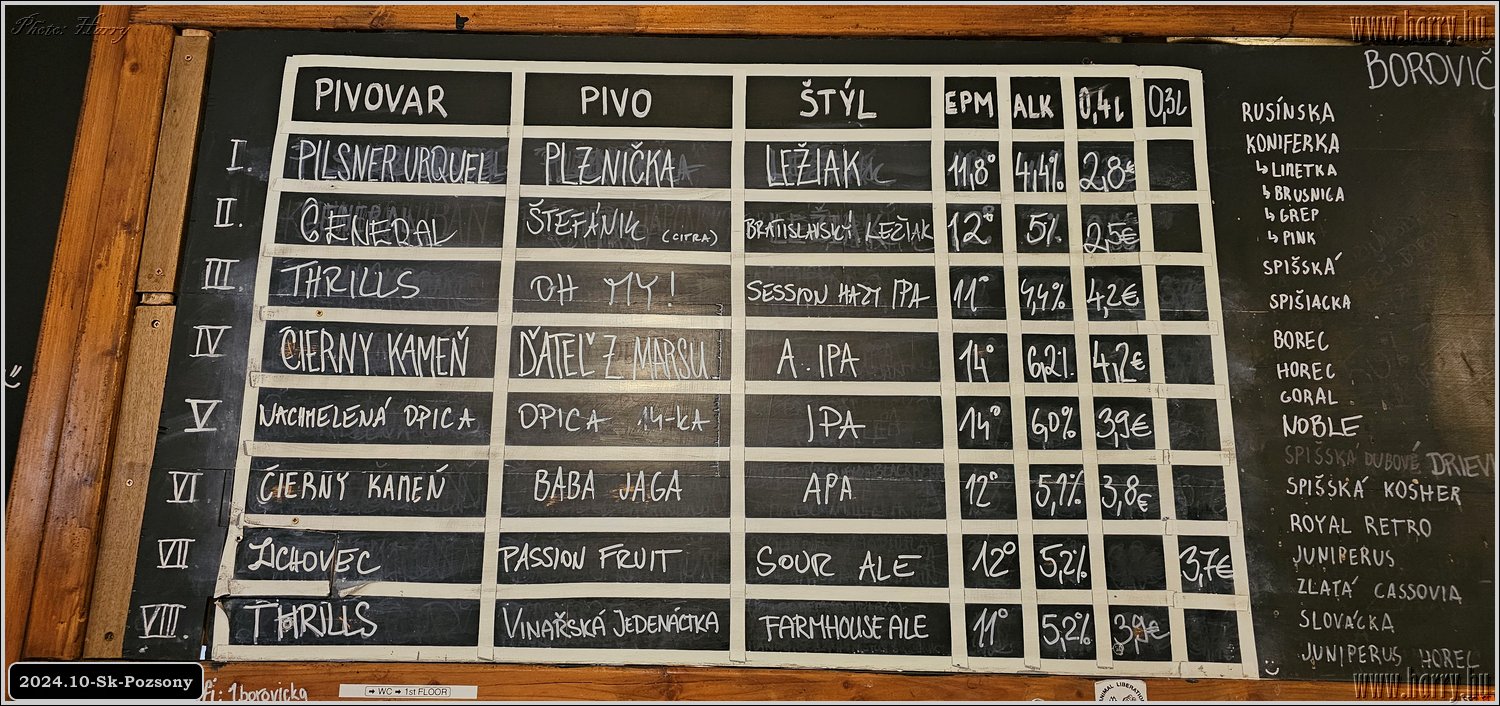 Photo: Harry
www.harry.hu
BOROVIČ
PIVOVAR PIVO ŠTÝL EPM ALK 0,4L 0,3L
I. PILSNER URQUEL PLZNIČKA LEŽIAK 11,8° 4,4% 2,8€
II. GENERAL ŠTEFÁNIK (CITRA) BRATISLAVSKÝ LEŽIAK 12° 5% 2,5€
III THRILLS OH MY! SESSION HAZY IPA 11° 4,4% 4,2€
IV ČIERNY KAMEŇ ĎATEĽ Z MARSU A. IPA 14° 6,2% 4,2€
V NACHMELENÁ OPICA OPICA 14-KA IPA 14° 6,0% 3,9€
VI ČIERNY KAMEŇ BABA JAGA APA 12° 5,1% 3,8€
VII LICHOVEC PASSION FRUIT SOUR ALE 12° 5,2% 3,7€
VIII. THRILLS VINAŘSKÁ JEDENÁCTKA FARMHOUSE ALE 11° 5,2% 3,9€
RUSÍNSKA
KONIFERKA
↳ LIMETKA
↳ BRUSNICA
↳ GREP
↳ PINK
SPIŠSKÁ
SPIŠIACKA
BOREC
HOREC
GORAL
NOBLE
SPIŠSKÁ DUBOVÉ DRIEV
SPIŠSKÁ KOSHER
ROYAL RETRO
JUNIPERUS
ZLATÁ CASSOVIA
SLOVÁCKA
JUNIPERUS HOREC
www.harry.hu
2024.10-Sk-Pozsony
1 borovicka
WC ➔ 1st FLOOR
ANIMAL LIBERATION